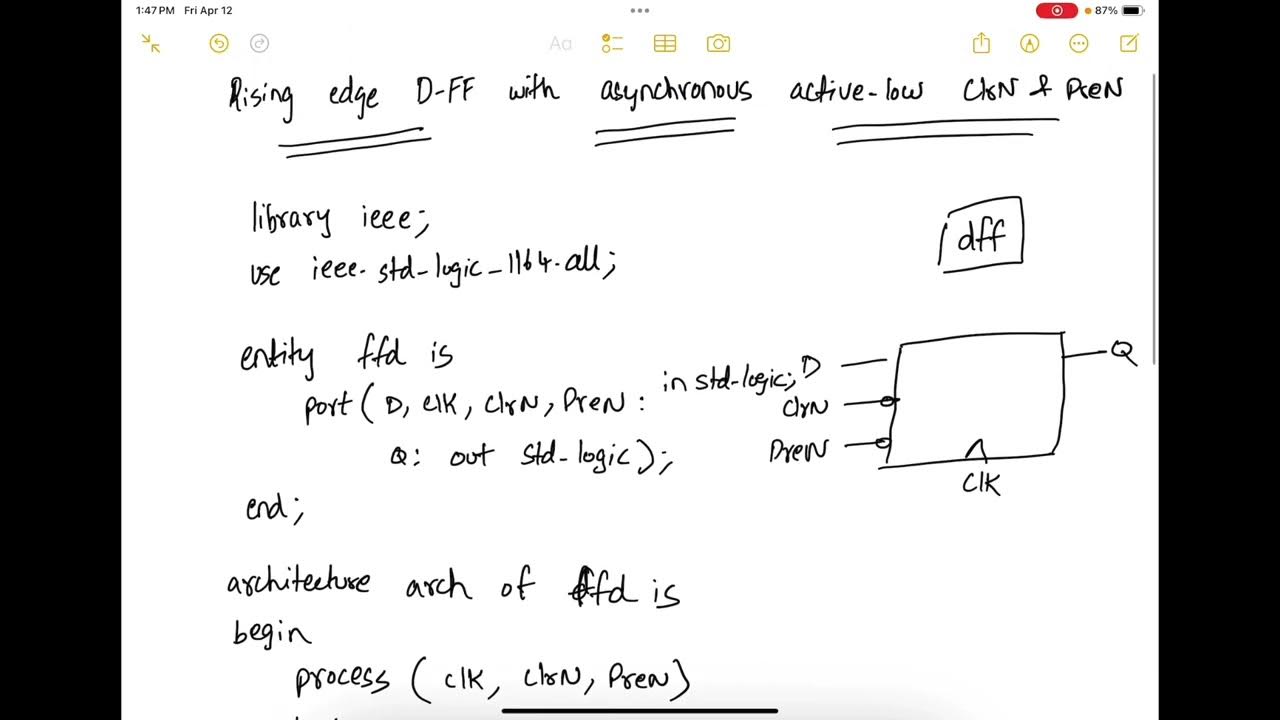 1:47 PM Fri Apr 12
87%
Aa
Rising edge D-FF with asynchronous active-low ClrN & PreN
library ieee;
use ieee.std_logic_1164.all;
dff
entity ffd is
port( D, Clk, ClrN, PreN : in std-logic;
Q: out std-logic);
end;
D
ClrN
PreN
Clk
Q
architecture arch of ffd is
begin
process ( Clk, ClrN, PreN)